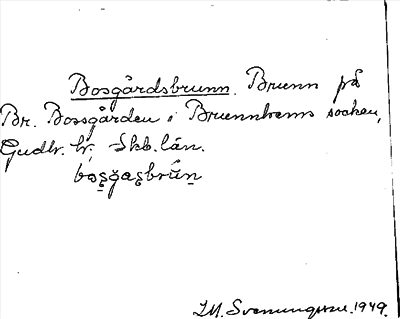 Bosgårdsbrunn. Brunn på
Br. Bossgården i Brunnhems socken,
Gudh. hr, Skb. län.
I.M. Svenungsson. 1949.